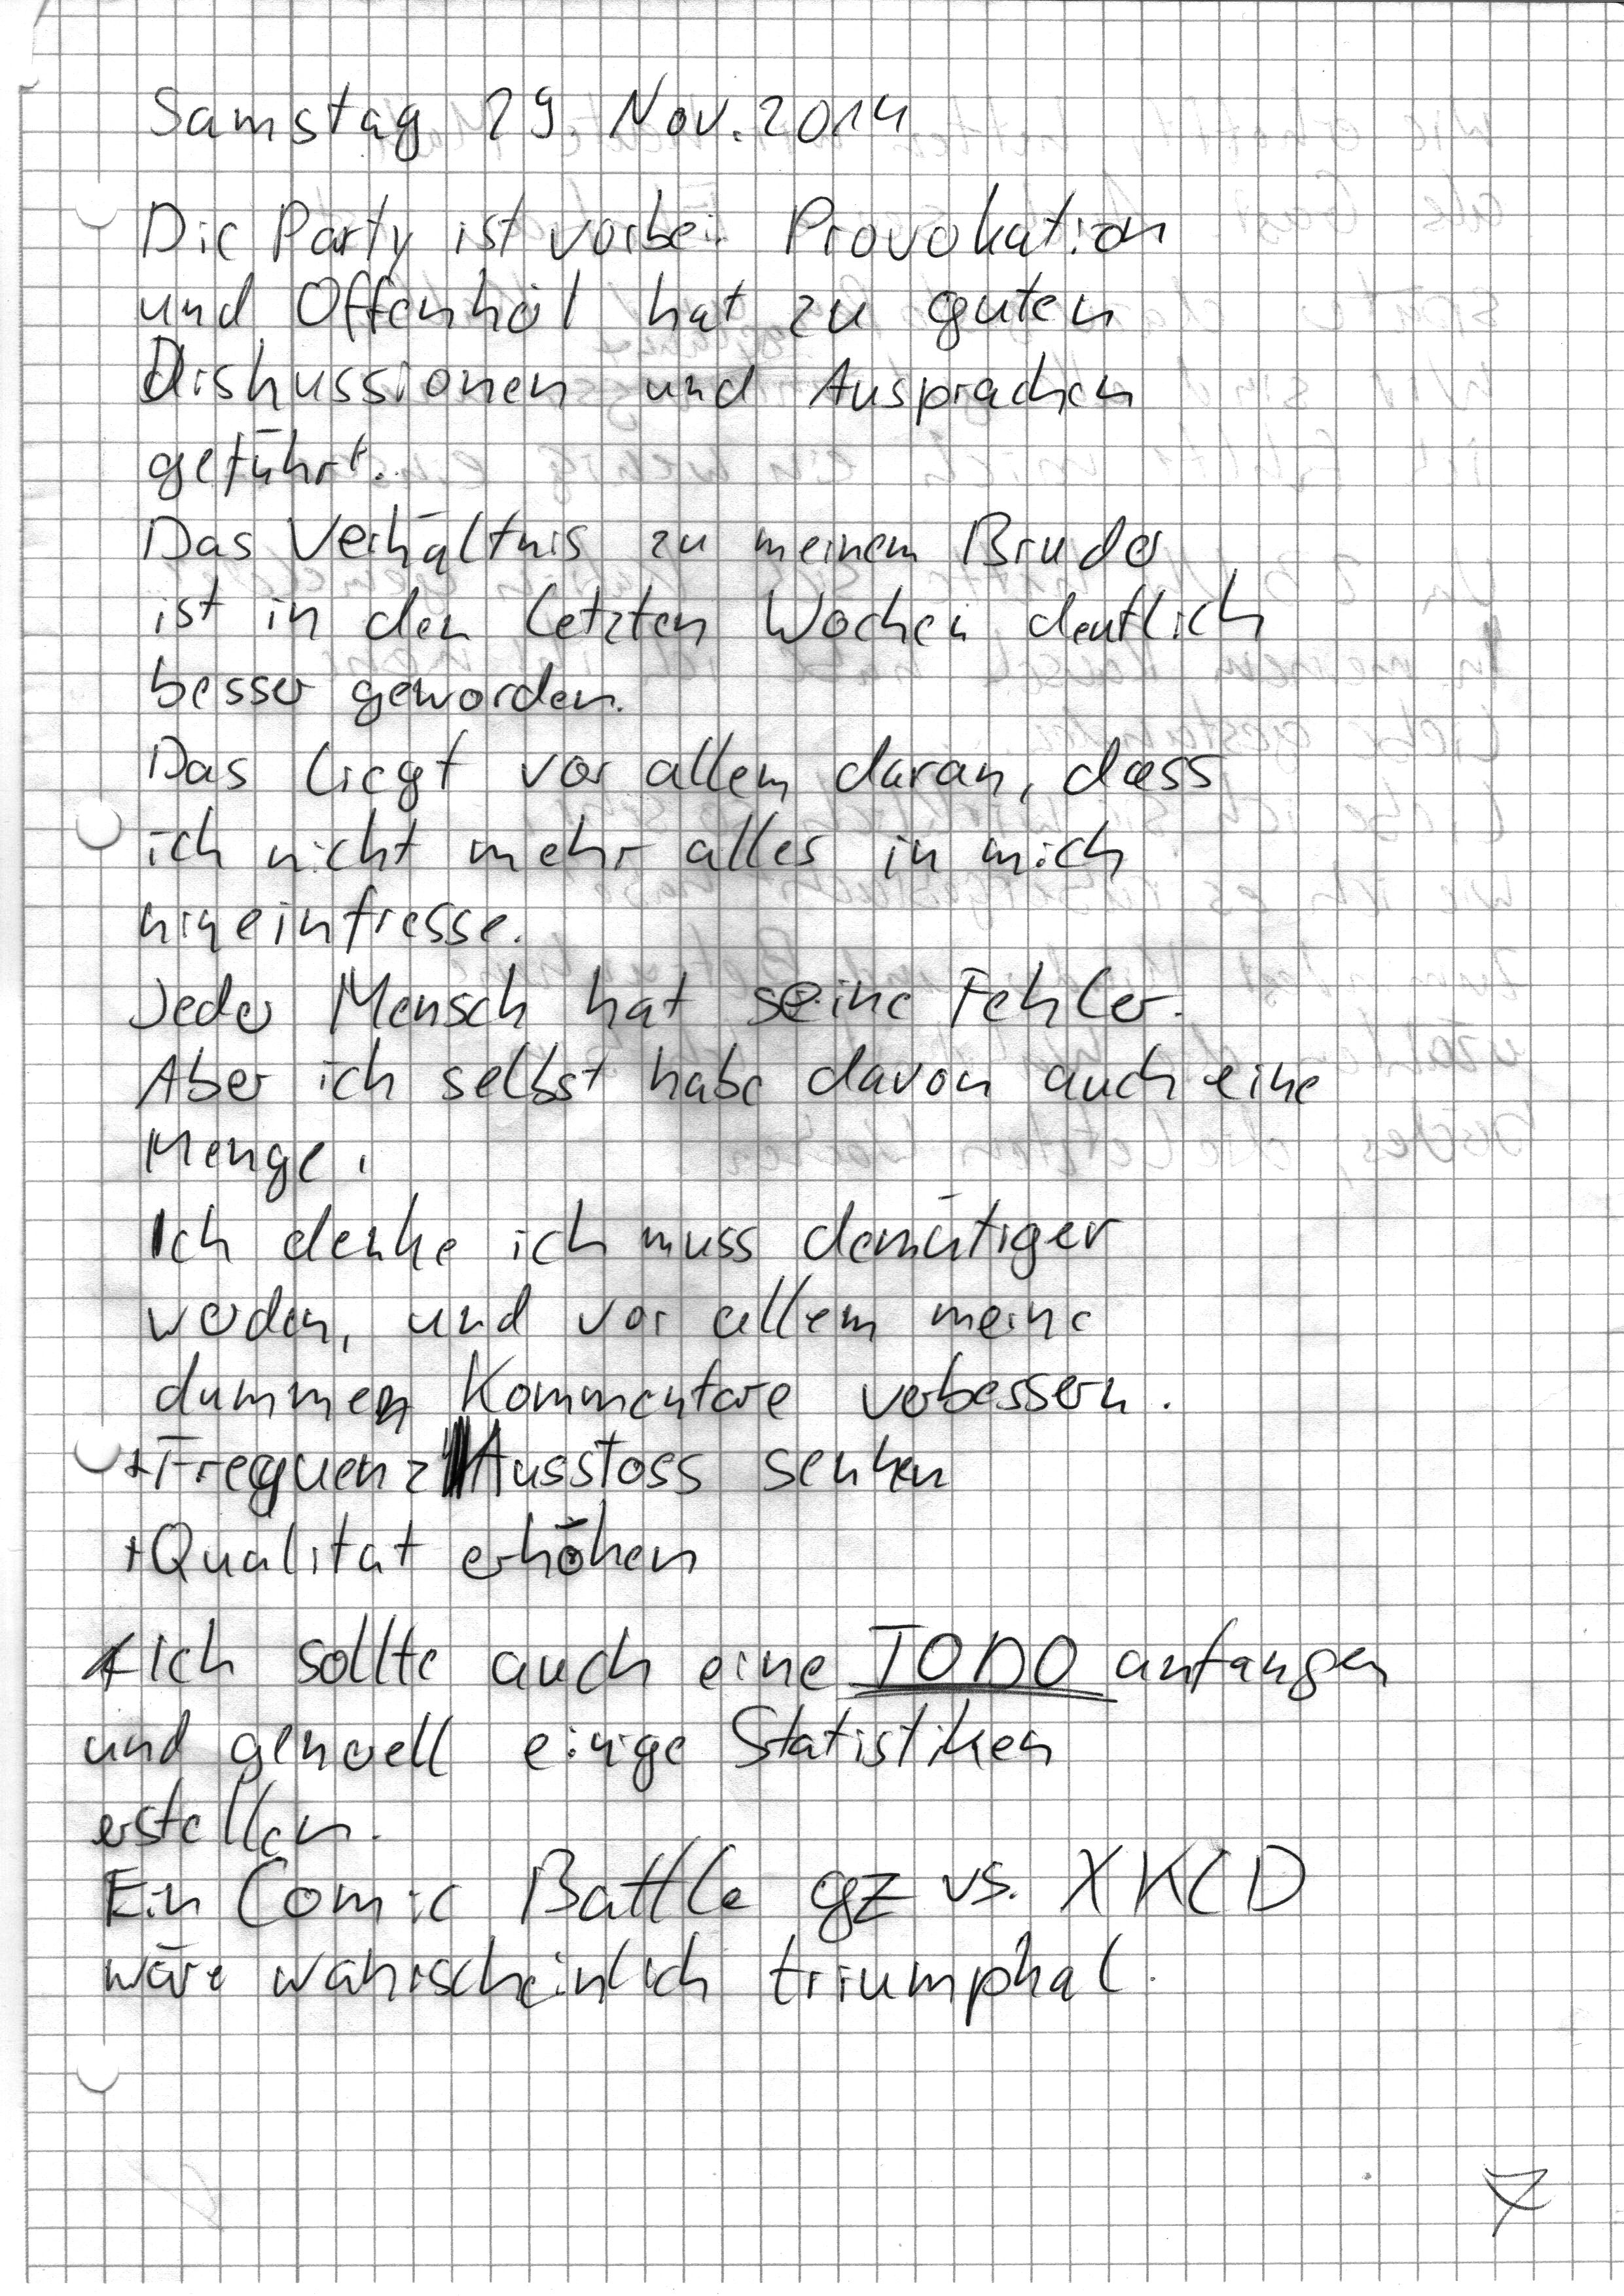 Samstag 29. Nov. 2014
Die Party ist vorbei. Provokation
und Offenheit hat zu guten
Diskussionen und Aussprachen
geführt.
Das Verhältnis zu meinem Bruder
ist in den letzten Wochen deutlich
besser geworden.
Das liegt vor allem daran, dass
ich nicht mehr alles in mich
hineinfresse.
Jeder Mensch hat seine Fehler.
Aber ich selbst habe davon auch eine
Menge.
Ich denke ich muss demütiger
werden, und vor allem meine
dummen Kommentare verbessern.
+Frequenz Ausstoss senken
+Qualität erhöhen
Ich sollte auch eine TODO anfangen
und generell einige Statistiken
erstellen.
Ein Comic Battle gz vs. XKCD
wäre wahrscheinlich triumphal.
7